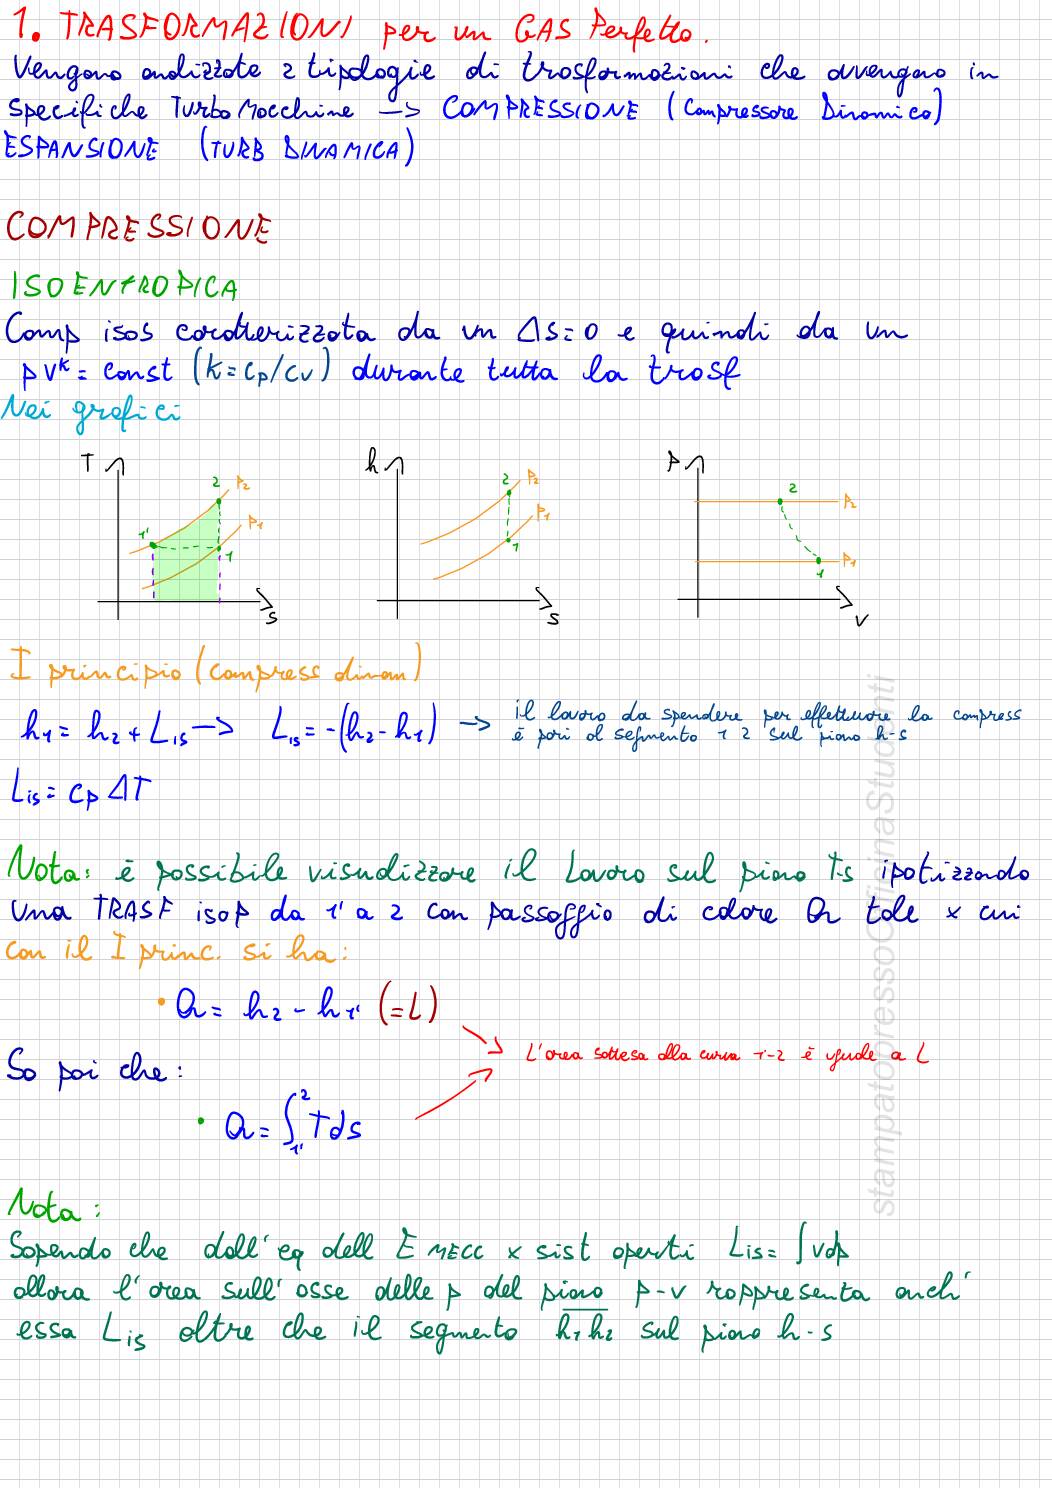 1. TRASFORMAZIONI per un GAS Perfetto.
Vengono analizzate 2 tipologie di trasformazioni che avvengono in
specifiche TurboMacchine → COMPRESSIONE (Compressore Dinamico)
ESPANSIONE (TURB DINAMICA)
COMPRESSIONE
ISOENTROPICA
Comp isos caratterizzata da un Δs=0 e quindi da un
pv^k = const (k=cp/cv) durante tutta la trasf
Nei grafici
T 2 P2 1' P1 1 s
h 2 P2 P1 1 s
P 2 P2 P1 1 v
I principio (compress dinam)
h1 = h2 + Lis → Lis = -(h2-h1) → il lavoro da spendere per effettuare la compress
è pari al segmento 1 2 sul piano h-s
Lis = cp ΔT
Nota: è possibile visualizzare il Lavoro sul piano T-s ipotizzando
una TRASF isop da 1' a 2 con passaggio di calore Q tale x cui
con il I princ. si ha:
• Q = h2 - h1' (=L)
L'area sottesa alla curva 1'-2 è uguale a L
So poi che:
• Q = ∫1'2 Tds
Nota:
Sapendo che dall'eq dell E MECC x sist aperti Lis = ∫vdp
allora l'area sull'asse delle p del piano p-v rappresenta anch'
essa Lis oltre che il segmento h1h2 sul piano h-s
stampatopressoOfficinaStudenti